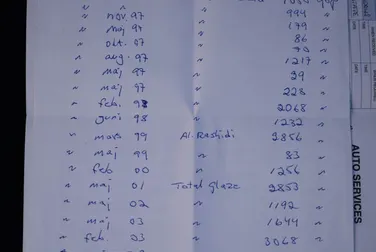 " nov. 97 " 994 "
" maj 97 " 179 "
" okt. 97 " 86 "
" aug. 97 " 1217 "
" maj 97 " 29 "
" maj 97 " 228 "
" feb. 98 " 2068 "
" juni 98 " 1232 "
" mars 99 Al-Rashidi 2856 "
" maj 99 " 83 "
" feb 00 " 1256 "
" maj 01 Total glaze 2853 "
" maj 02 " 1192 "
" maj 03 " 1644 "
" feb. 03 " 3068 "
AUTO SERVICES